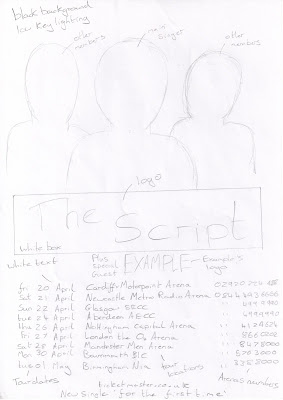 black background
low key lighting
other members
main singer
other members
logo
The Script
white box
white text
Plus special Guest EXAMPLE - Example's logo
Fri 20 April Cardiff Motorpoint Arena
Sat 21 April Newcastle Metro Radio Arena
Sun 22 April Glasgow SECC
Tue 24 April Aberdeen AECC
Thu 26 April Nottingham Capital Arena
Fri 27 April London the O2 Arena
Sat 28 April Manchester Men Arena
Mon 30 April Bournemouth BIC
Tue 01 May Birmingham Nia
Tour dates
tour locations
Arenas numbers
ticketmaster.co.uk
New single 'for the first time'